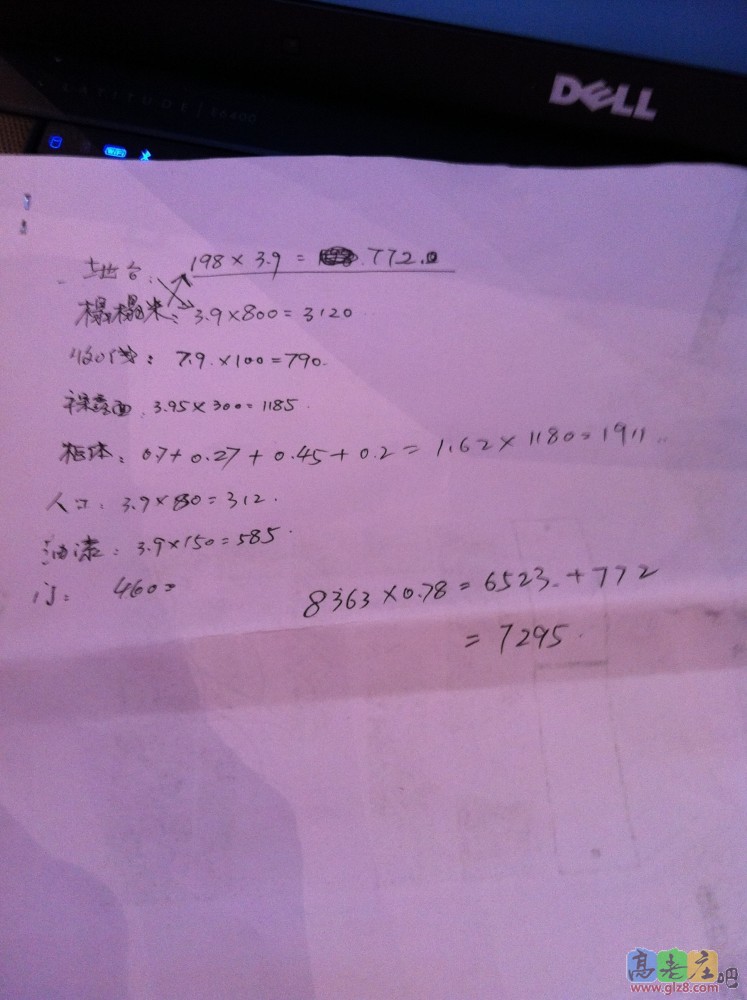 DELL
LATITUDE E6400
地台: 198 × 3.9 = 772.0
榻榻米: 3.9×800=3120
收口线: 7.9×100=790
裸露面: 3.95×300=1185.
柜体: 0.7+0.27+0.45+0.2=1.62×1180=1911
人工: 3.9×80=312.
油漆: 3.9×150=585.
门: 460=
8363×0.78=6523.+772
=7295.
高老庄吧
www.glz8.com